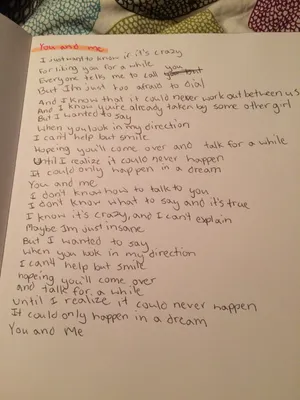 You and me
I just want to know if it's crazy
For liking you for a while
Everyone tells me to call you
But I'm just too afraid to dial
And I know that it could never work out between us
And I know you're already taken by some other girl
But I wanted to say
When you look in my direction
I can't help but smile
Hoping you'll come over and talk for a while
Until I realize it could never happen
It could only happen in a dream
You and me
I don't know how to talk to you
I don't know what to say and it's true
I know it's crazy, and I can't explain
Maybe I'm just insane
But I wanted to say
When you look in my direction
I can't help but smile
hoping you'll come over
and talk for a while
until I realize it could never happen
It could only happen in a dream
You and Me